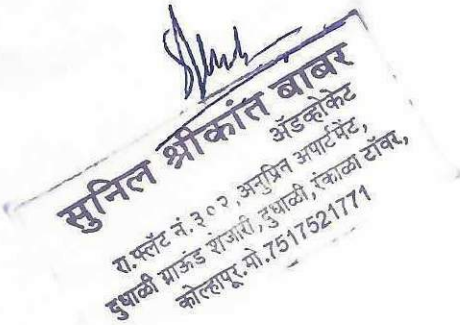 सुनिल श्रीकांत बाबर
अ‍ॅडव्होकेट
रा.फ्लॅट नं.३०२,अनुप्रित अपार्टमेंट,
दुधाळी ग्राऊंड शेजारी,दुधाळी,रंकाळा टॉवर,
कोल्हापूर.मो.7517521771